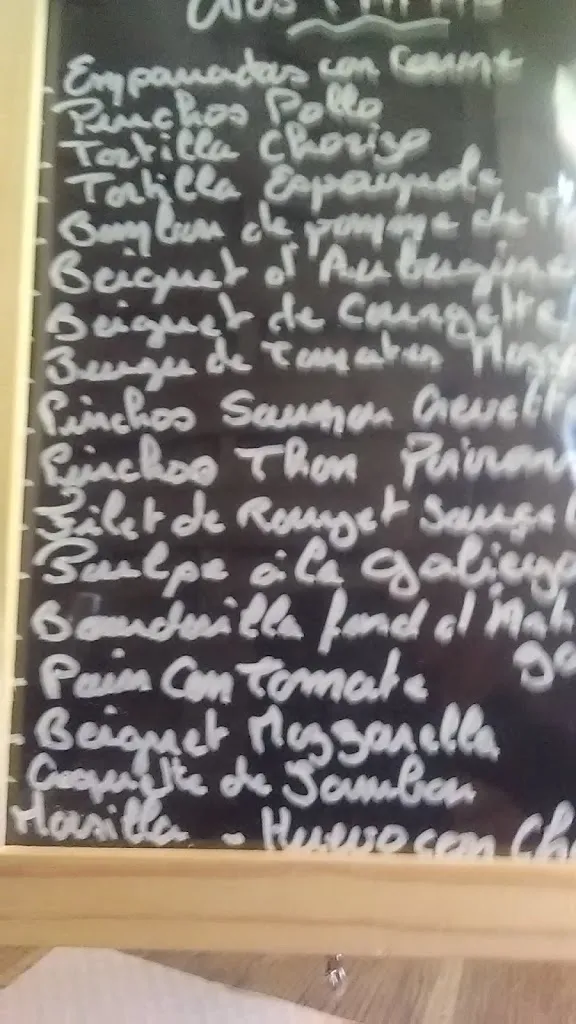 Nos
- Empanadas con Carne
- Pinchos Pollo
- Tortilla Chorizo
- Tortilla Espagnole
- de pomme de
- Beignet d'Aubergine
- Beignet de Courgette
- de Tomates Mozz
- Pinchos Saumon Crevett
- Pinchos Thon Poivron
- Filet de Rouget Sauce
- Poulpe à la galicyo
- fond d'
- Pain Con Tomate
- Beignet Mozzarella
- Croquette de Jambon
- Huevo con Ch